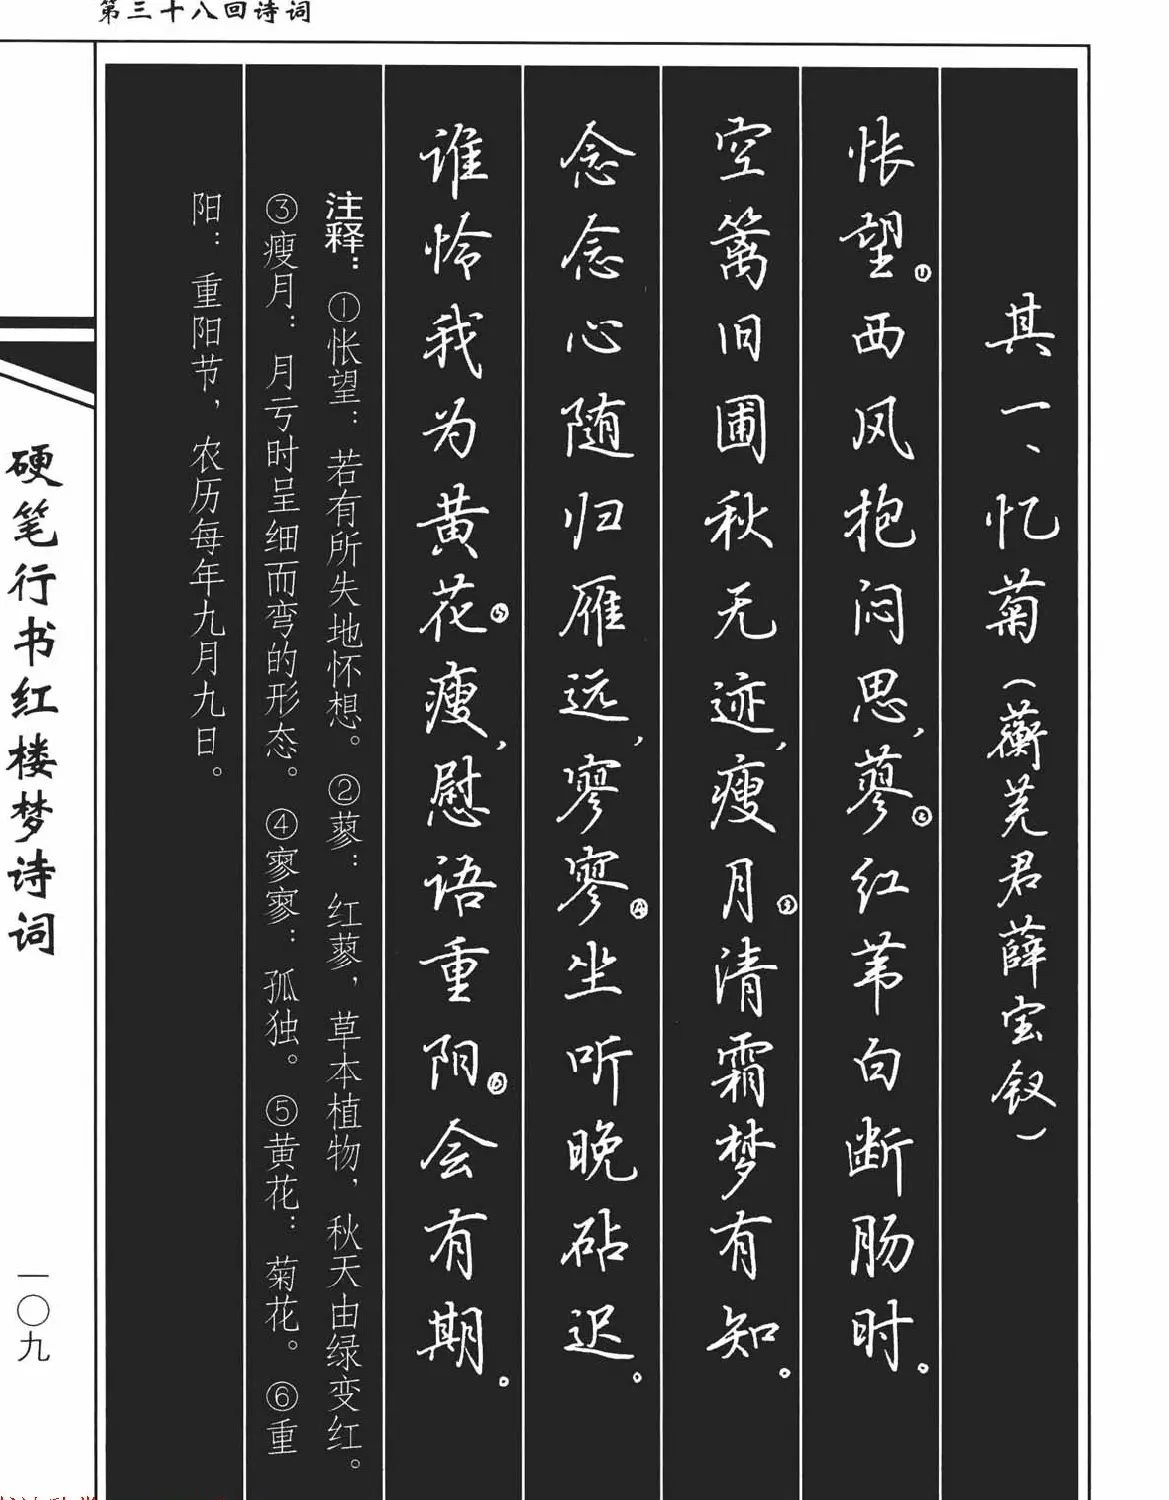 第三十八回诗词
其一、忆菊（蘅芜君薛宝钗）
怅望①西风抱闷思，蓼②红苇白断肠时。
空篱旧圃秋无迹，瘦月③清霜梦有知。
念念心随归雁远，寥寥④坐听晚砧迟。
谁怜我为黄花⑤瘦，慰语重阳⑥会有期。
注释：①怅望：若有所失地怀想。②蓼：红蓼，草本植物，秋天由绿变红。
③瘦月：月亏时呈细而弯的形态。④寥寥：孤独。⑤黄花：菊花。⑥重
阳：重阳节，农历每年九月九日。
硬笔行书红楼梦诗词
一〇九